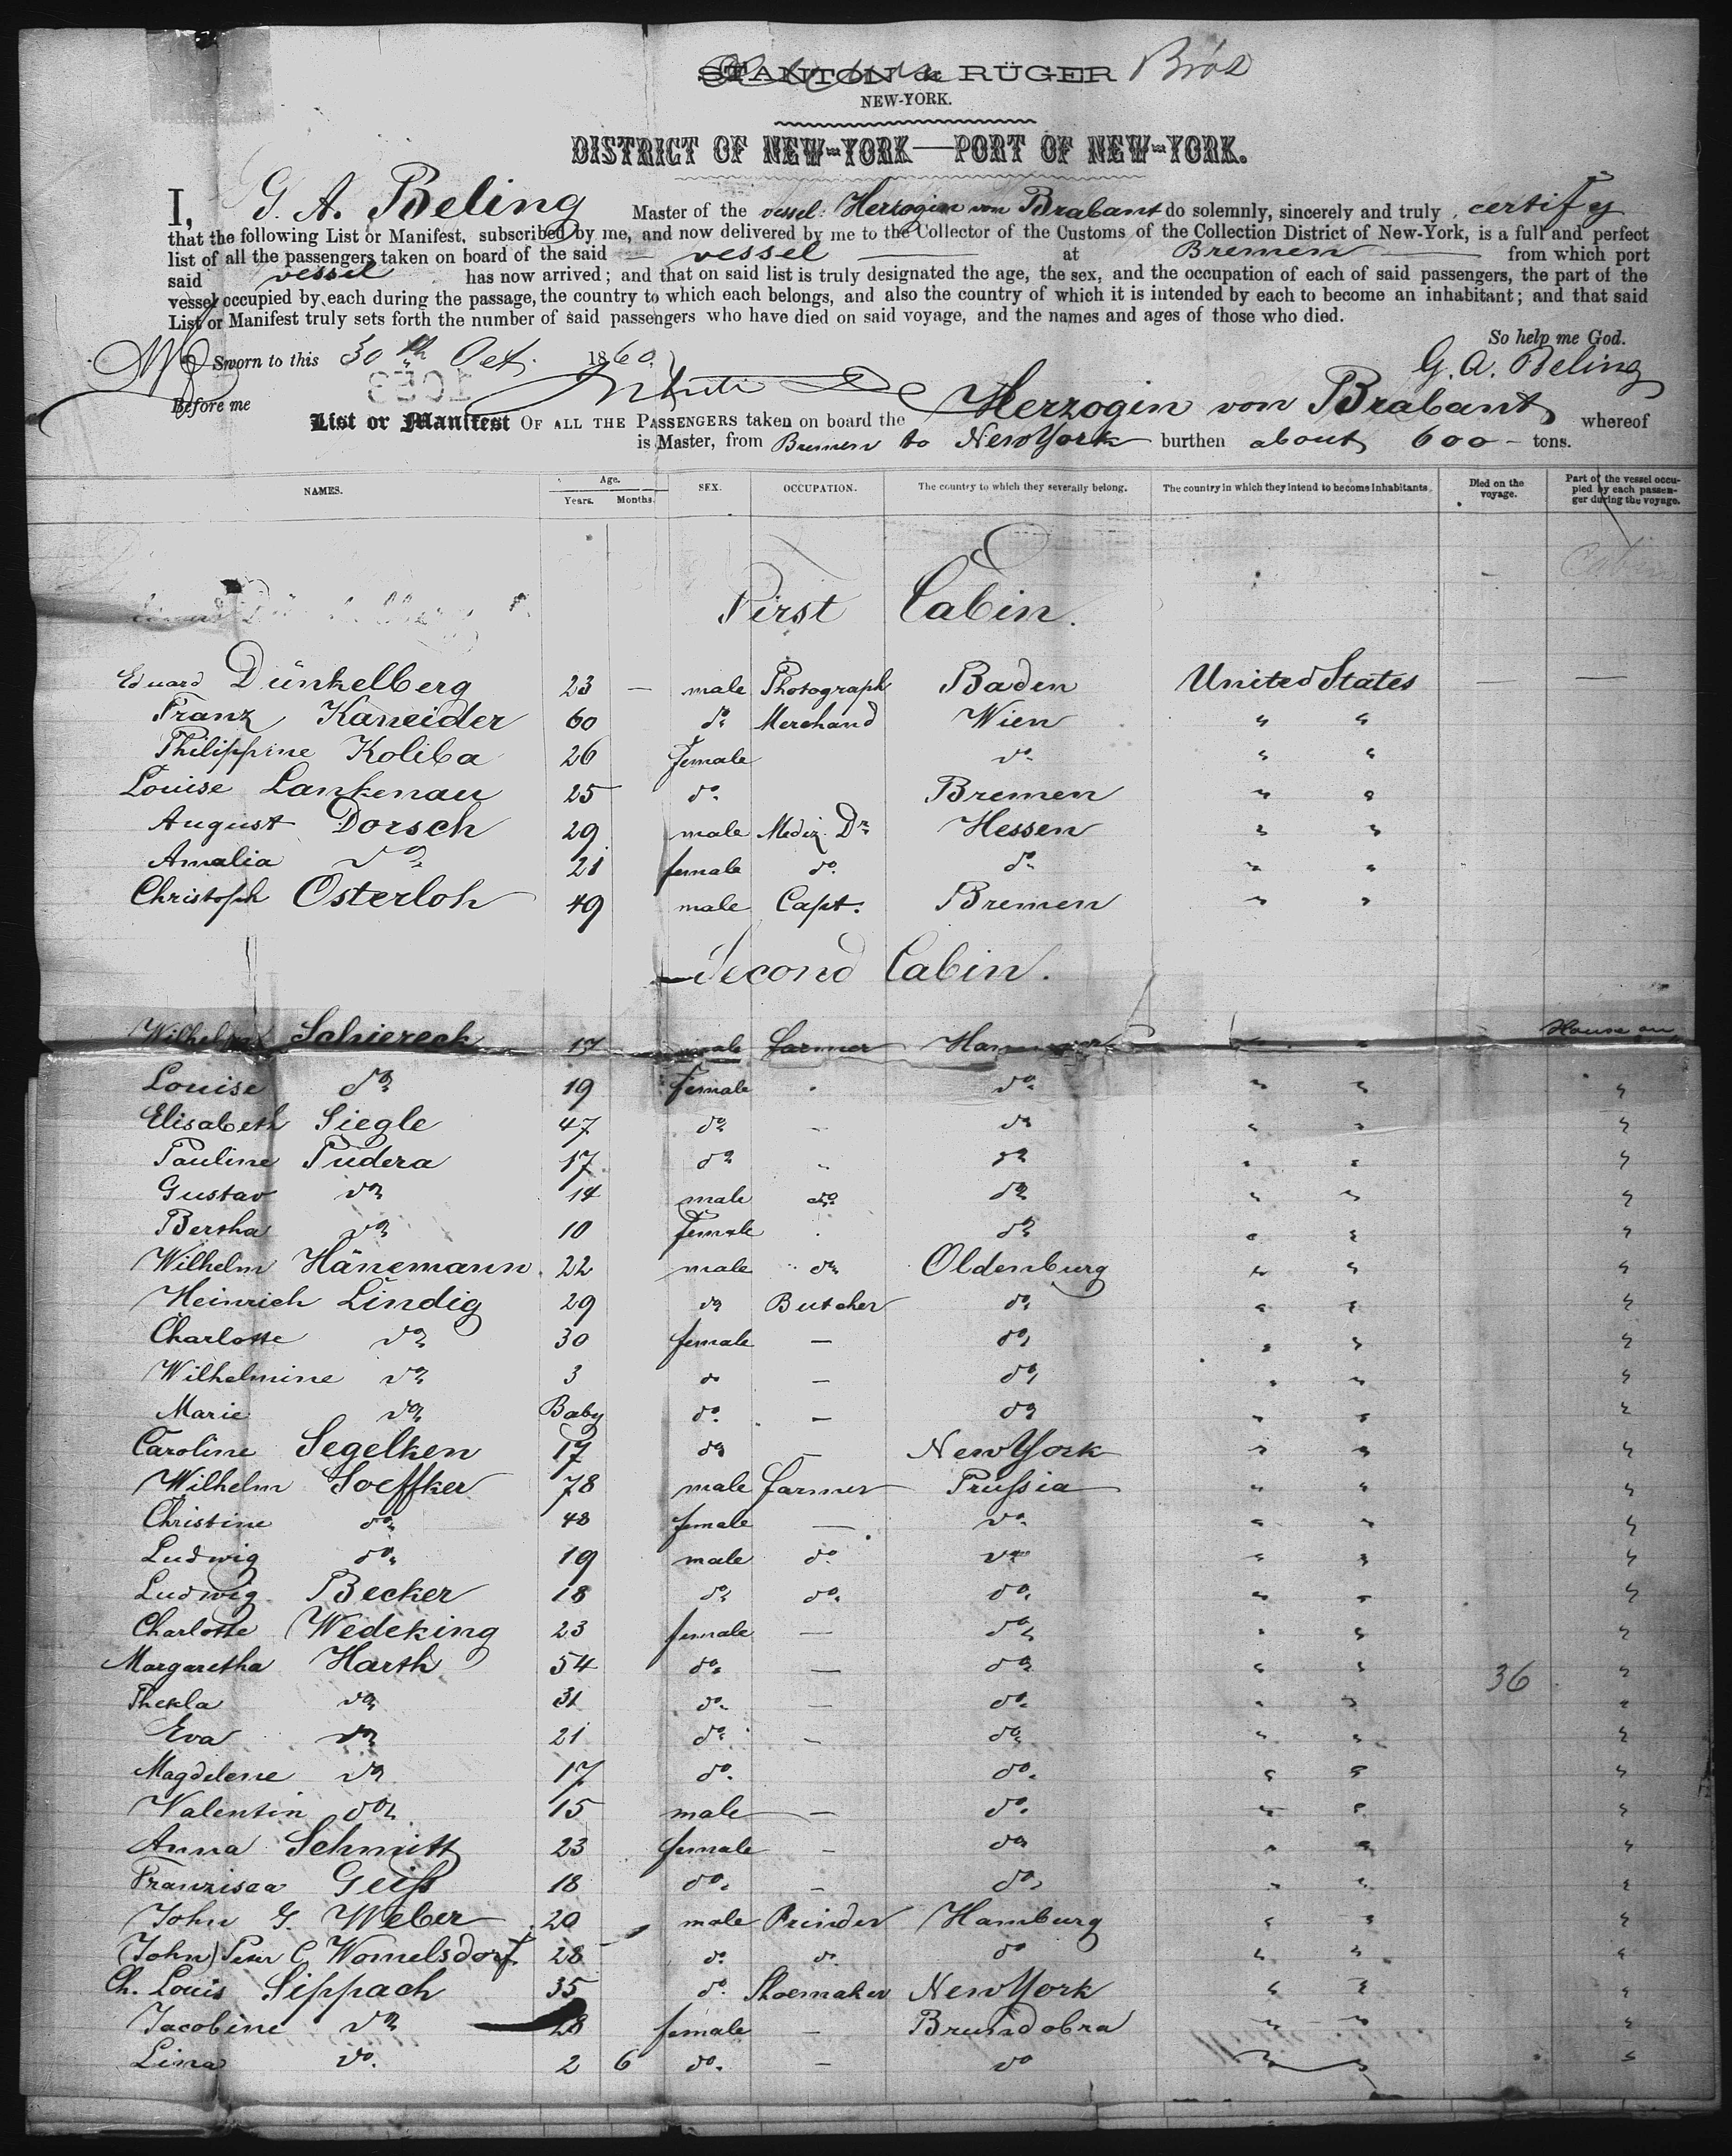 STANTON & RÜGER Bros
NEW-YORK.
DISTRICT OF NEW-YORK—PORT OF NEW-YORK.
I, G. A. Beling Master of the vessel Herzogin von Brabant do solemnly, sincerely and truly certify
that the following List or Manifest, subscribed by me, and now delivered by me to the Collector of the Customs of the Collection District of New-York, is a full and perfect
list of all the passengers taken on board of the said vessel at Bremen from which port
said vessel has now arrived; and that on said list is truly designated the age, the sex, and the occupation of each of said passengers, the part of the
vessel occupied by each during the passage, the country to which each belongs, and also the country of which it is intended by each to become an inhabitant; and that said
List or Manifest truly sets forth the number of said passengers who have died on said voyage, and the names and ages of those who died.
So help me God.
Sworn to this 30th Oct. 1860 G. A. Beling
Before me
List or Manifest OF ALL THE PASSENGERS taken on board the Herzogin von Brabant whereof
is Master, from Bremen to New York burthen about 600 tons.
NAMES. Age. Years. Months. SEX. OCCUPATION. The country to which they severally belong. The country in which they intend to become inhabitants. Died on the voyage. Part of the vessel occupied by each passenger during the voyage.
Cabin
First Cabin.
Eduard Dünkelberg 23 — male Photograph Baden United States — —
Franz Kaneider 60 do. Merchand Wien " "
Philippine Koliba 26 female do. " "
Louise Lankenau 25 do. Bremen " "
August Dorsch 29 male Mediz. Dr. Hessen " "
Amalia do. 21 female do. do. " "
Christoph Osterloh 49 male Capt. Bremen " "
Second Cabin.
Wilhelm Schiereck 17 male farmer Hannover " " House on
Louise do. 19 female do. " " "
Elisabeth Siegle 47 do. - do. " " "
Pauline Pudera 17 do. - do. " " "
Gustav do. 14 male do. do. " " "
Bertha do. 10 female do. " " "
Wilhelm Hänemann 22 male do. Oldenburg " " "
Heinrich Lindig 29 do. Butcher do. " " "
Charlotte do. 30 female — do. " " "
Wilhelmine do. 3 do. — do. " " "
Marie do. Baby do. — do. " " "
Caroline Segelken 17 do. — New York " " "
Wilhelm Soeffker 78 male farmer Prussia " " "
Christine do. 48 female — do. " " "
Ludwig do. 19 male do. do. " " "
Ludwig Becker 18 do. do. do. " " "
Charlotte Wedeking 23 female — do. " " "
Margaretha Harth 54 do. — do. " " 36 "
Thekla do. 31 do. — do. " " "
Eva do. 21 do. - do. " " "
Magdelene do. 17 do. do. " " "
Valentin do. 15 male — do. " " "
Anna Schmitt 23 female - do. " " "
Franzisca Geiss 18 do. - do. " " "
John G. Weber 20 male Prinder Hamburg " " "
(John) Peter C. Womelsdorf 28 do. do. do. " " "
Ch. Louis Sippach 35 do. Shoemaker New York " " "
Jacobine do. 28 female — Brunndobra " " "
Lina do. 2 6 do. — do " " "